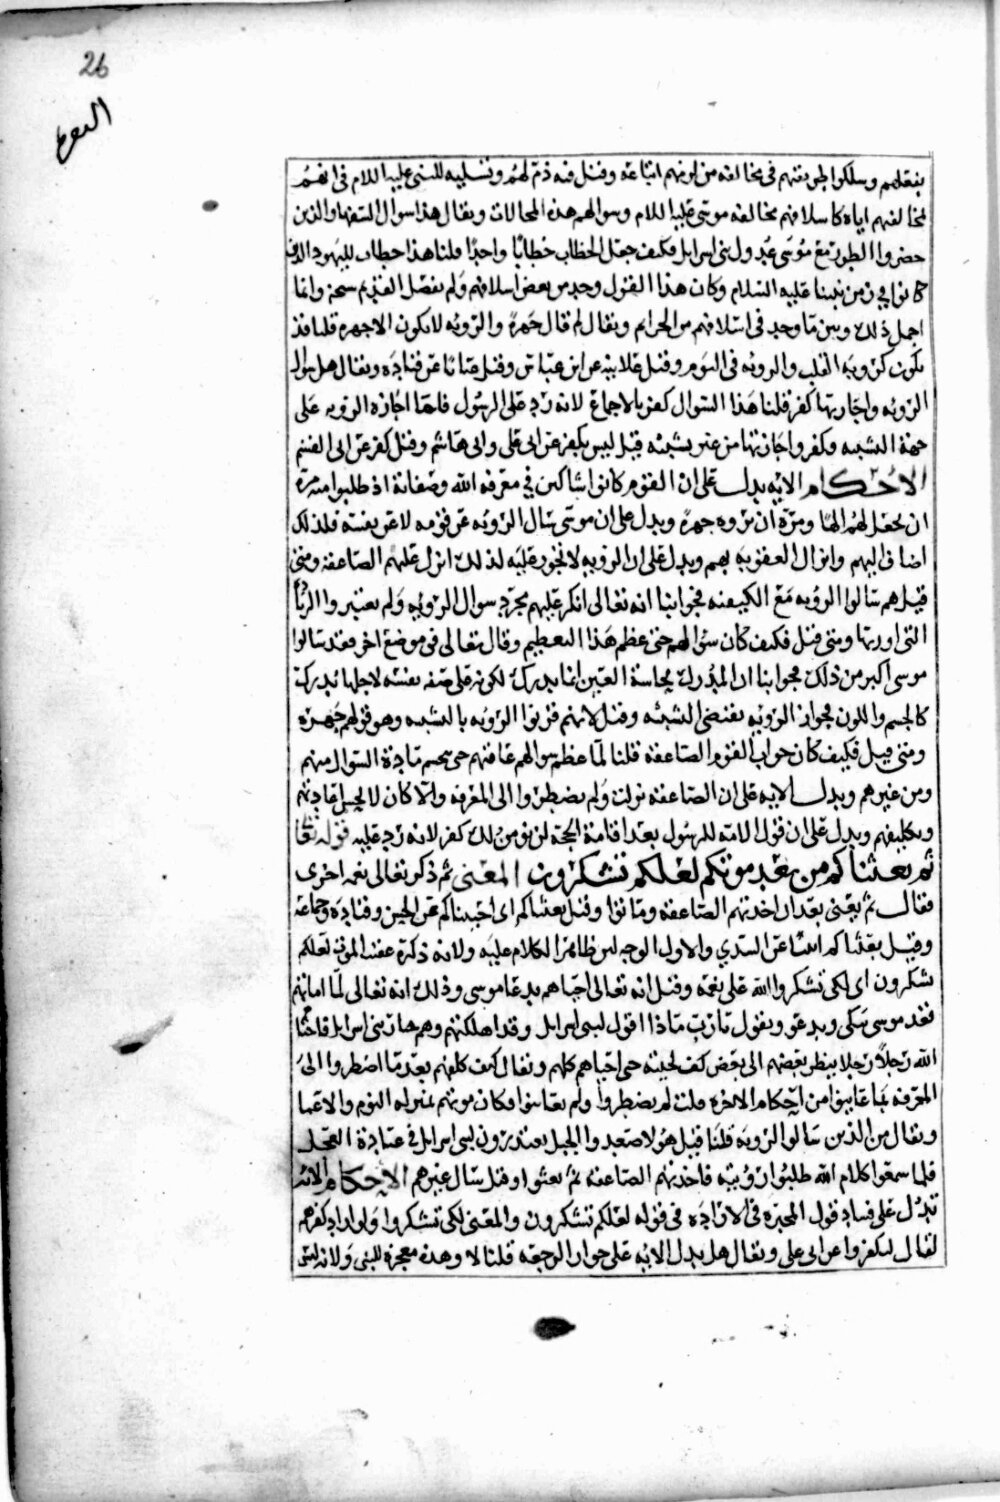 26
البقرة
بفعلهم وسلكوا طريقتهم في مخالفة من لزمهم اتباعه وقيل فيه ذم لهم وتسلية للنبي عليه السلام في
مخالفتهم اياه كاسلافهم مخالفة موسى عليه السلام وسوالهم هذه المحالات ويقال هذا سوال السفهاء والذين
حضروا الطور مع موسى عدول بني اسرايل فكيف جعل الخطاب خطابا واحدا قلنا هذا خطاب لليهود الذين
كانوا في زمن نبينا عليه السلام وكان هذا القول وجد من بعض اسلافهم ولم يفصل القديم سبحنه وانما
اجمل ذلك وبين ما وجد في اسلافهم من الجرايم ويقال لم قال جهرة والرويه لا يكون الا جهره قلنا قد
يكون كرويه القلب والرويه في النوم وقيل علانيه عن ابن عباس وقيل عيانا عن قتاده ويقال هل سوال
الرويه واجازتها كفر قلنا هذا السوال كفر بالاجماع لانه رد على الرسول فاما اجازه الرويه على
جهة التشبيه فكفر واجازتها من غير تشبيه قيل ليس بكفر عن ابي علي وابي هاشم وقيل كفر عن ابي القسم
الاحكام الايه يدل على ان القوم كانوا شاكين في معرفه الله وصفاته اذ طلبوا مرة
ان يجعل لهم الها ومرة ان يروه جهرة ويدل على ان موسى سال الرويه عن قومه لا عن نفسه فلذلك
اضاف اليهم وانزال العقوبه بهم ويدل على ان الرويه لا تجوز عليه لذلك انزل عليهم الصاعقة ومتى
قيل هم سالوا الرويه مع الكيفيه فجوابنا انه تعالى انكر عليهم مجرد سوال الرويه ولم يعتبروا
التي اوردتها ومتى قيل فكيف كان سوالهم حتى عظم هذا التعظيم وقال تعالى في موضع اخر فقد سالوا
موسى اكبر من ذلك فجوابنا ان المدرك بحاسة العين انما يدرك لكونه على صفه نفسه لاجلها يدركه
كالجسم واللون فجواز الرويه يقتضي التشبيه وقيل لانهم قرنوا الرويه بالتشبيه وهو قولهم جهرة
ومتى قيل فكيف كان جواب القوم الصاعقة قلنا لما عظم سوالهم عاقبهم حتى يحسم مادة السوال منهم
ومن غيرهم ويدل الايه على ان الصاعقة نزلت ولم يضطروا الى المعرفه والا كان لا يحسن اعادتهم
وتكليفهم ويدل على ان قول الامه للرسول بعد اقامة الحجة لن نومن لك كفر لانه رد عليه قوله تعالى
ثم بعثناكم من بعد موتكم لعلكم تشكرون المعنى ثم ذكر تعالى نعمه اخرى
فقال ثم يعني بعد ان اخذتهم الصاعقة وماتوا وقيل بعثناكم اي احييناكم عن الحسن وقتاده وجماعة
وقيل بعثناكم انبيا عن السدي والاول الوجه لان ظاهر الكلام عليه ولانه ذكره عقيب الموت لعلكم
تشكرون اي لكي تشكروا الله على نعمه وقيل انه تعالى احياهم بدعا موسى وذلك انه تعالى لما اماتهم
فقد موسى يبكي ويدعو ويقول يا رب ماذا اقول لبني اسرايل وقد اهلكتهم وهم خيار بني اسرايل فاحيا
الله رجلا رجلا ينظر بعضهم الى بعض كيف يحييه حتى احياهم كلهم ويقال كيف كلفهم بعد ما اضطروا الى
المعرفه بما عاينوا من احكام الاخره قلنا لم يضطروا ولم يعاينوا فكان موتهم بمنزله النوم والاغما
ويقال من الذين سالوا الرويه قلنا قيل هولا صعدوا الجبل يعتذرون لبني اسرايل في عبادة العجل
فلما سمعوا كلام الله طلبوا رويته فاخذتهم الصاعقه ثم بعثوا وقيل سال غيرهم الاحكام الايه
تدل على فساد قول المجبره في الاراده في قوله لعلكم تشكرون والمعنى لكي تشكروا ولو اراد كفرهم
لقال ليكفروا عن ابي علي ويقال هل يدل الايه على جواز الرجعه قلنا لا وهذه معجزة للنبي ولانه ليس